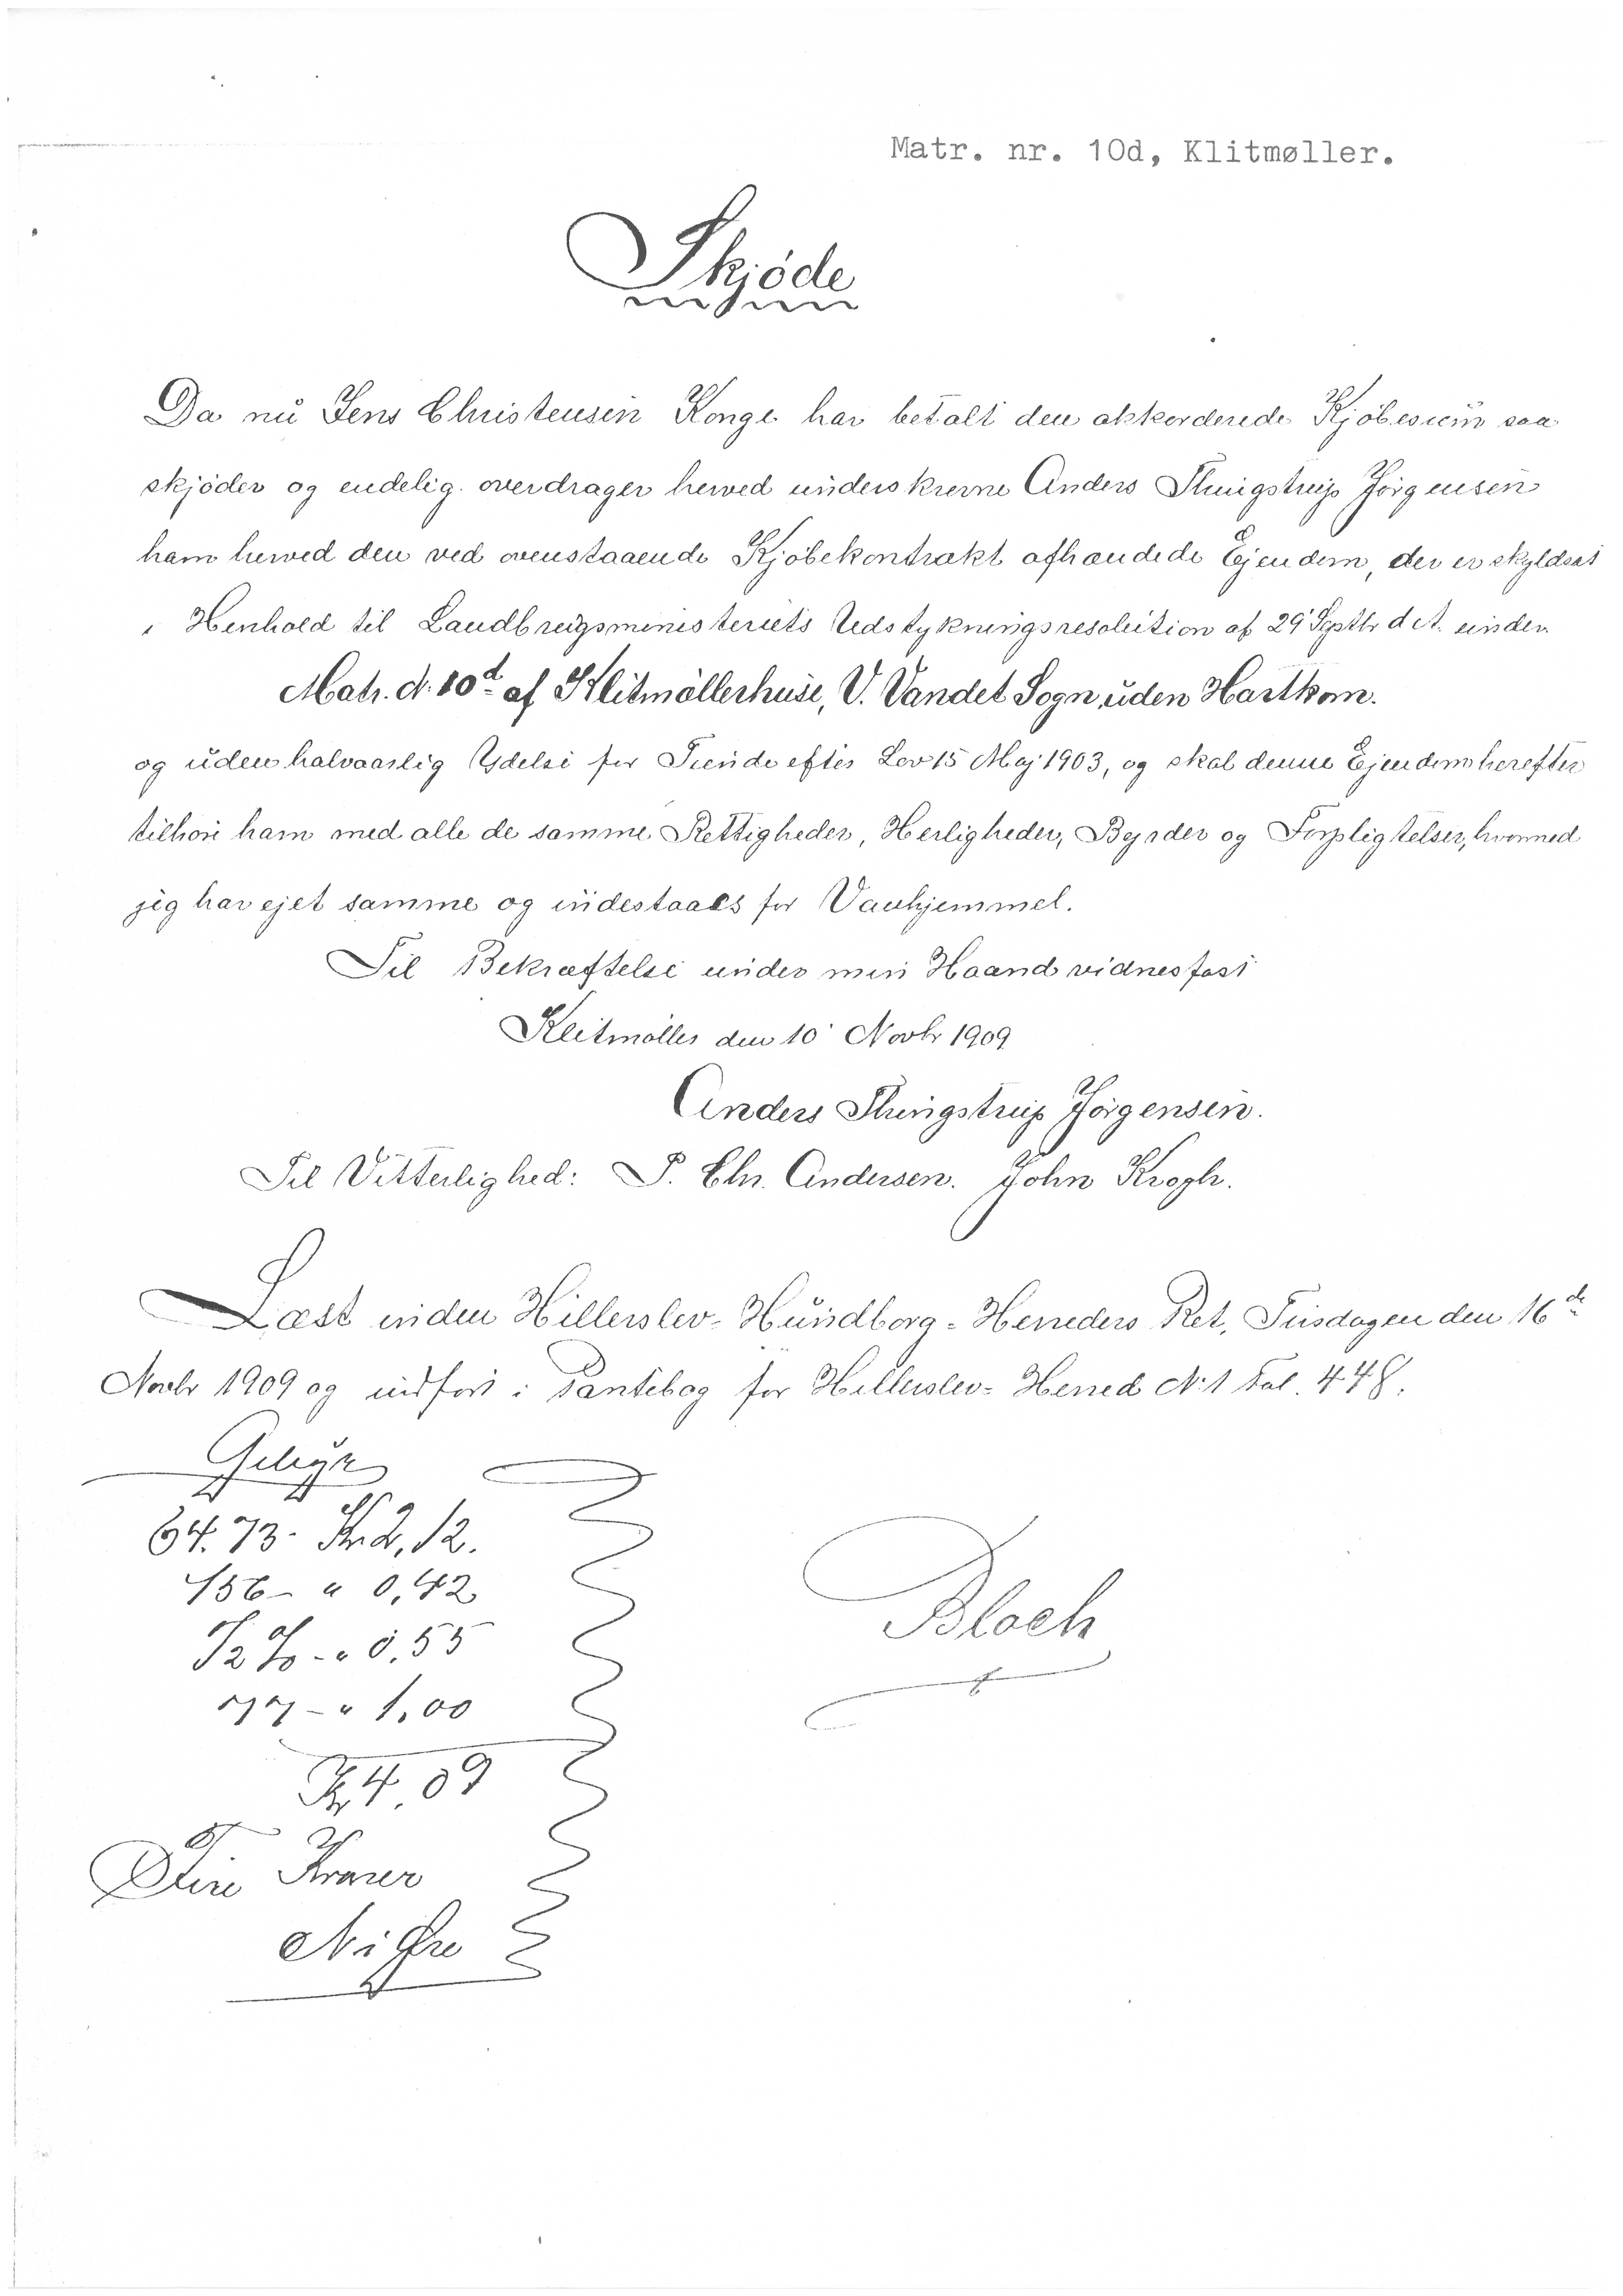 Matr. nr. 10d, Klitmøller.
Skjöde
Da nu Jens Christensen Konge har betalt den akkorderede Kjöbesum saa
skjöder og endelig overdrager herved underskrevne Anders Slungstrup Jörgensen
ham herved den ved ovenstaaende Kjöbekontrakt afhændede Ejendom, der er skyldsat
i Henhold til Landbrugsministeriets Udstykningsresolution af 29' Septbr d. A. under
Matr. N. 10d af Klitmöllerhuse, V. Vandet Sogn, uden Hartkorn.
og uden halvaarlig Ydelse for Tiende efter Lov 15 Maj 1903, og skal denne Ejendom herefter
tilhöre ham med alle de samme Rettigheder, Herligheder, Byrder og Forpligtelser, hvormed
jeg har ejet samme og indestaaes for Vanhjemmel.
Til Bekræftelse under min Haand vidnesfast
Klitmöller den 10' Novbr 1909
Anders Slungstrup Jörgensen.
Til Vitterlighed: P. Chr. Andersen. John Krogh.
Læst inden Hillerslev-Hundborg-Herreders Ret, Tirsdagen den 16de
Novbr 1909 og indfört i Pantebog for Hillerslev-Herred N. 1 Fol. 448.
Gebyr
64.73 - Kr. 2,12.
156 - " 0,42
1/2 % - " 0,55
" 1,00
Kr 4,09
Fire Kroner
Ni Øre
Bloch